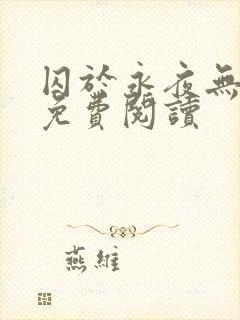 囚於永夜無
免費閱讀
燕維